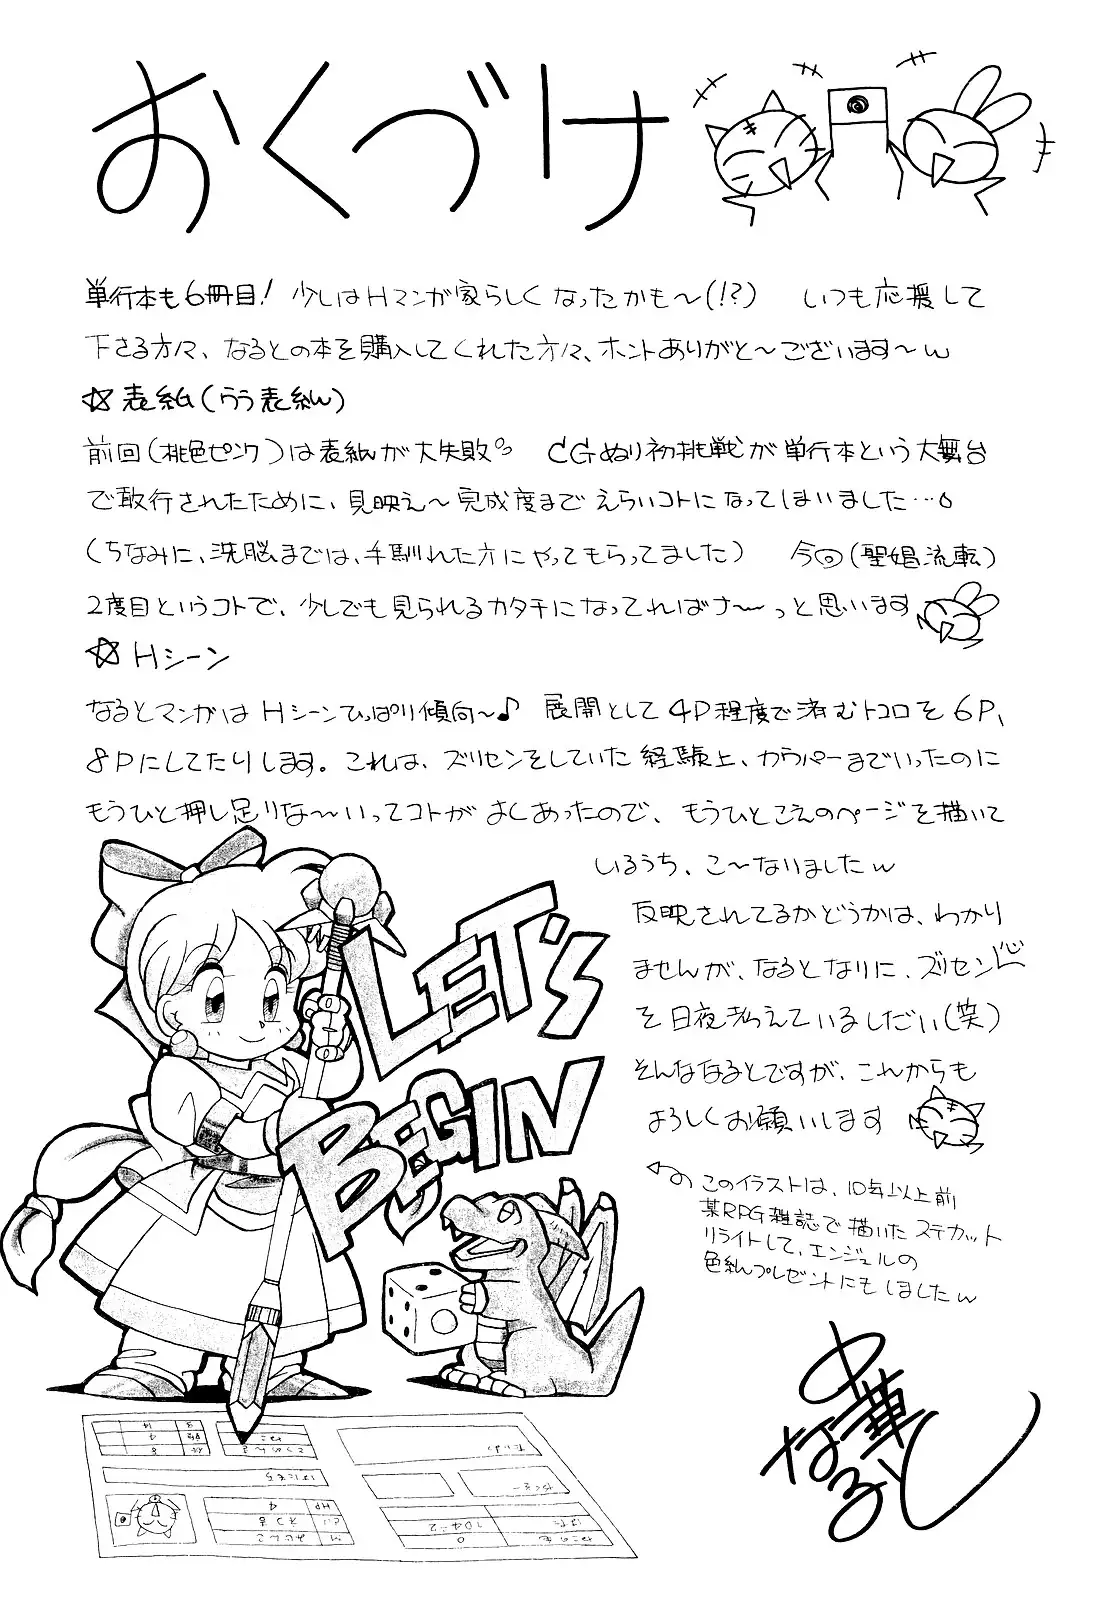 おくづけ
単行本も6冊目! 少しはHマンガ家らしくなったかも〜(!?) いつも応援して
下さる方々、なるとの本を購入してくれた方々、ホントありがと〜ございます〜w
☆表紙(うら表紙)
前回(桃色ピンク)は表紙が大失敗 CGぬり初挑戦が単行本という大舞台
で敢行されたために、見映え〜完成度までえらいコトになってしまいました…。
(ちなみに、洗脳までは、手馴れた方にやってもらってました) 今回(聖娼流転)
2度目というコトで、少しでも見られるカタチになってればナ〜っと思います
☆Hシーン
なるとマンガはHシーンひっぱり傾向〜♪ 展開として4P程度で済むトコロを6P、
8Pにしてたりします。これは、ズリセンをしていた経験上、カウパーまでいったのに
もうひと押し足りな〜いってコトがよくあったので、もうひとこえのページを描いて
いるうち、こ〜なりましたw
反映されてるかどうかは、わかり
ませんが、なるとなりに、ズリセン
を日夜考えているしだい(笑)
そんななるとですが、これからも
よろしくお願いします
このイラストは、10年以上前
某RPG雑誌で描いたステカット
リライトして、エンジェルの
色紙プレゼントにもしましたw
LET'S
BEGIN
中華
なると
HP